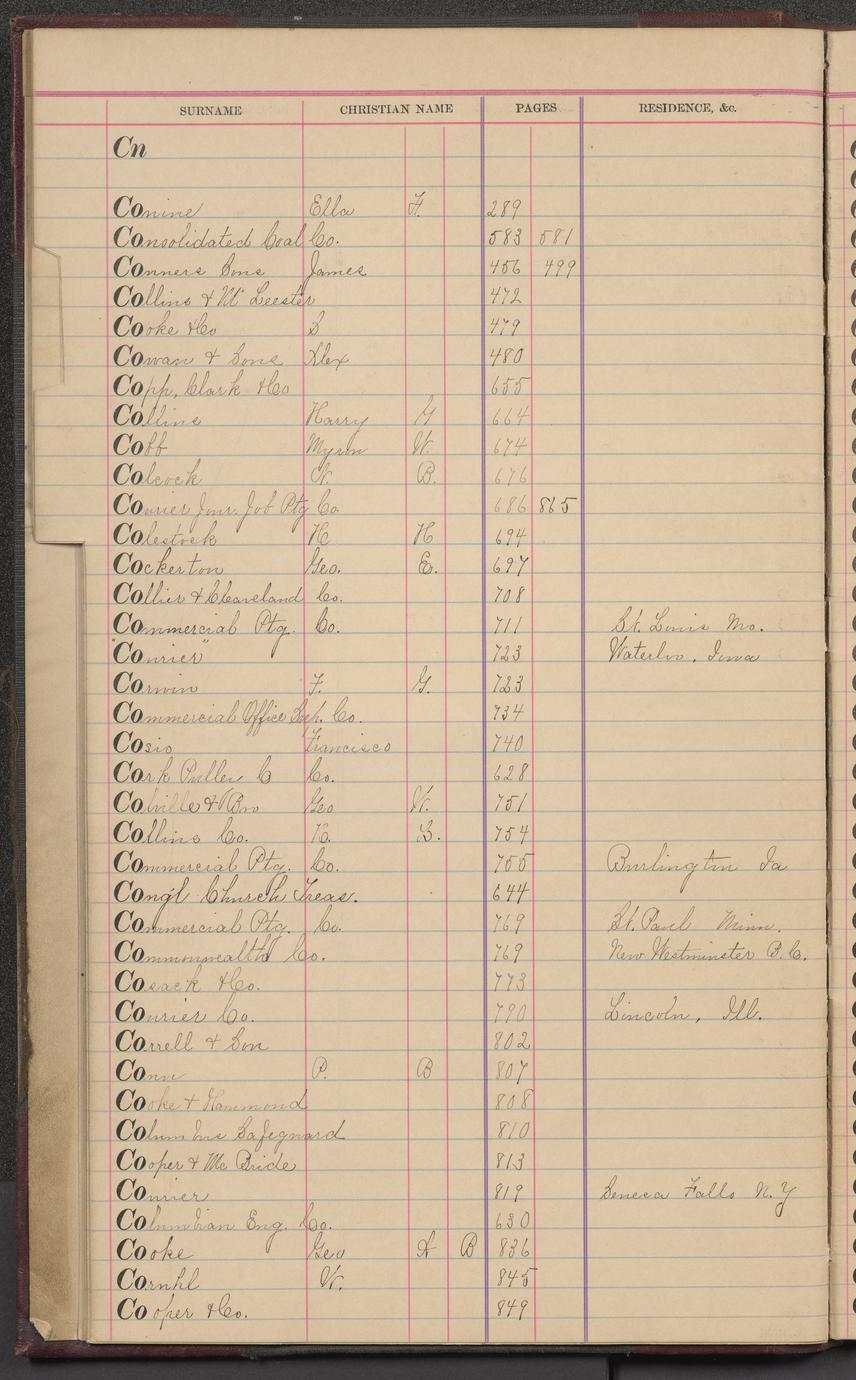 SURNAME CHRISTIAN NAME PAGES RESIDENCE, &c.
Cn
Conine Ella F. 289
Consolidated Coal Co. 583 581
Conners Sons James 456 499
Collins & Mc Leester 472
Cooke & Co S 479
Cowan & Sons Alex 480
Copp, Clark & Co 655
Collins Harry G 664
Coff Myron W. 674
Colcock N. B. 676
Courier Jour. Job Ptg Co 686 865
Colestock H H 694
Cockerton Geo. E. 697
Collier & Cleaveland Co. 708
Commercial Ptg. Co. 711 St. Louis Mo.
"Courier" 723 Waterloo, Iowa
Corwin F. G. 723
Commercial Office Sup. Co. 734
Cosio Francisco 740
Cork Puller Co. 628
Colville & Bro Geo W. 751
Collins Co. S. 754
Commercial Ptg. Co. 755 Burlington Ia
Congl Church Treas. 644
Commercial Ptg. Co. 769 St. Paul Minn.
Commonwealth Co. 769 New Westminster B.C.
Cosack & Co. 773
Courier Co. 790 Lincoln, Ill.
Correll & Son 802
Conn P. B 807
Cooke & Hammond 808
Columbus Safeguard 810
Cooper & Mc Bride 813
Courier 819 Seneca Falls N.Y
Columbian Eng. Co. 630
Cooke Geo A B 836
Cornhl W. 845
Cooper & Co. 849